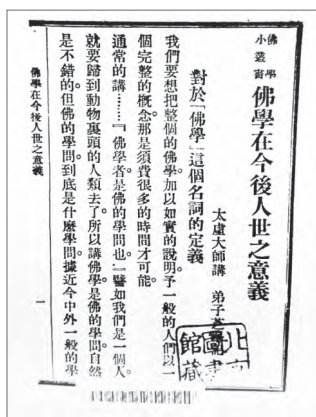 佛學小叢書
佛學在今後人世之意義
太虛大師講 弟子
對於「佛學」這個名詞的定義
我們要想把整個的佛學加以如實的說明予一般的人們以一
個完整的概念那是須費很多的時間才可能。
通常的講……『佛學者是佛的學問也。』譬如我們是一個人。
就要歸到動物裏頭的人類去了。所以講佛學是佛的學問自然
是不錯的。但佛的學問到底是什麼學問。據近今中外一般的學
佛學在今後人世之意義
一